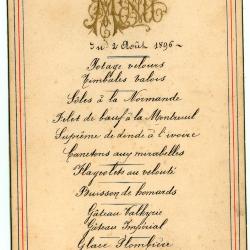 Menu
du 2 Août 1896
Potage velours
Timbales valois
Soles à la Normande
Filet de bœuf à la Montreuil
Suprême de dinde à l'ivoire
Canetons aux mirabelles
Flageolets au velouté
Buisson de homards
Gâteau Valkyrie
Gâteau Impérial
Glace Plombière